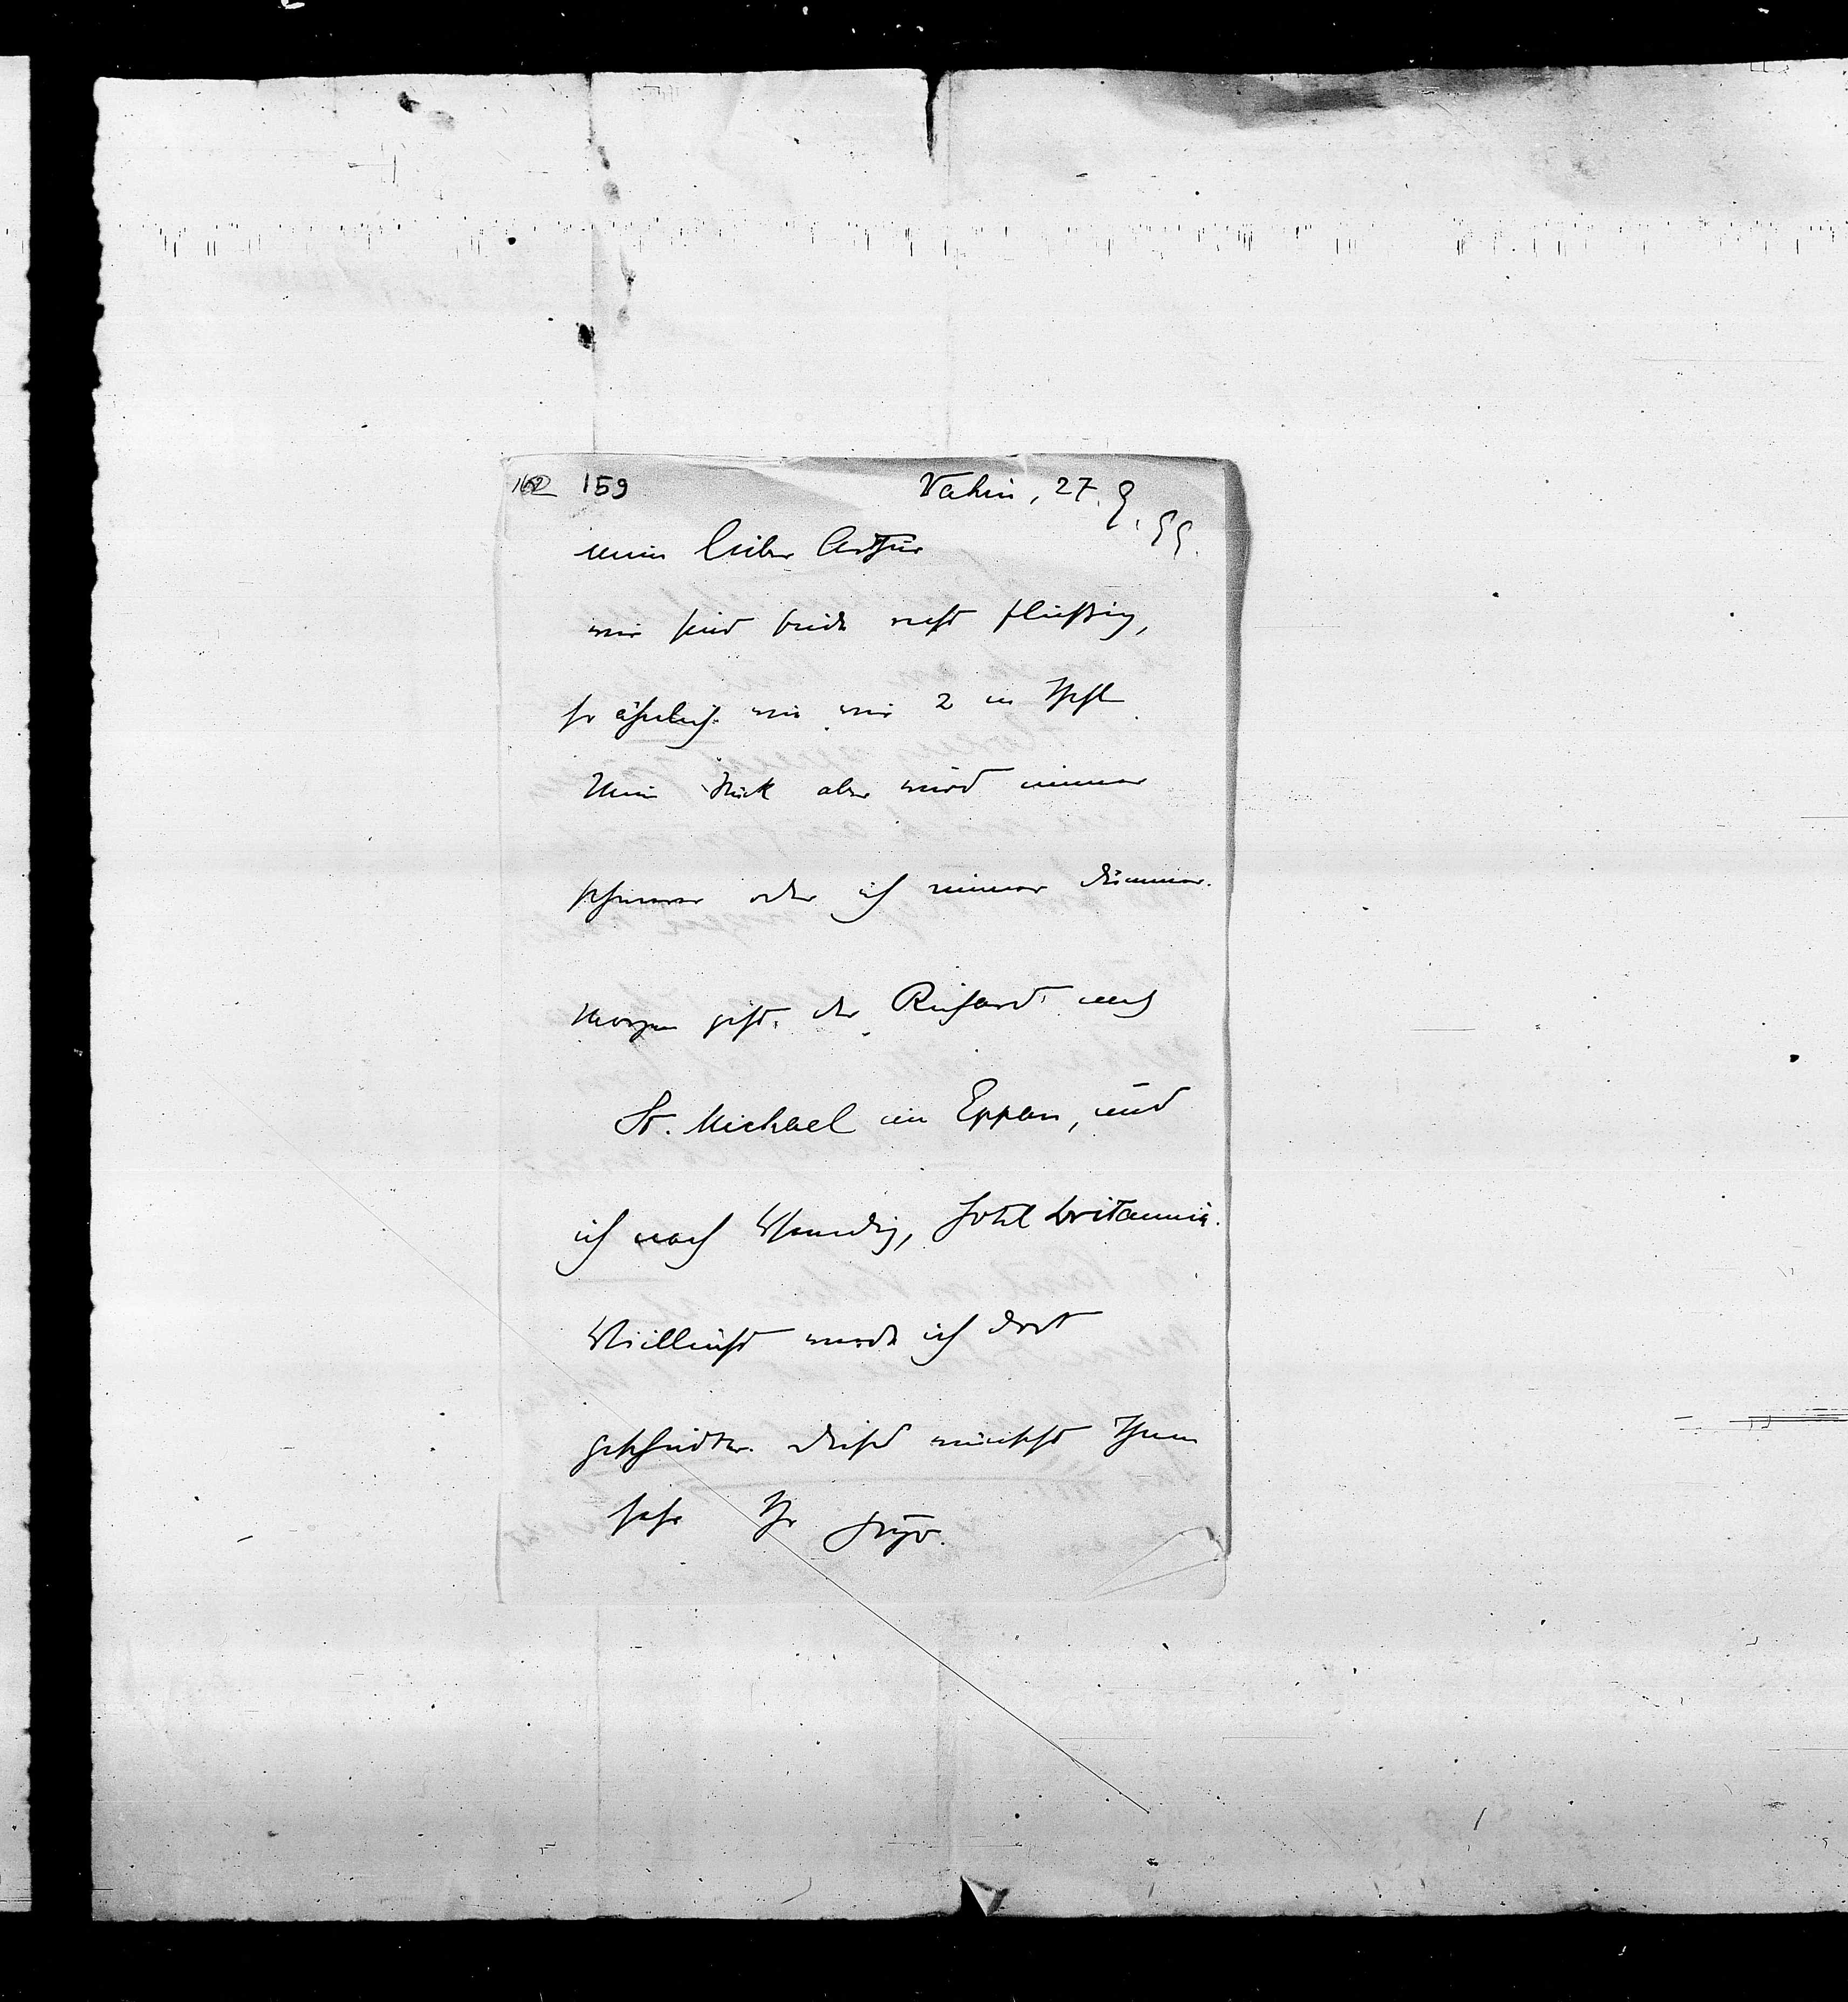 159 Vahrn, 27. 9. 99.
mein lieber Arthur
wir sind beide recht fleißig,
so ähnlich wie wir 2 in Ischl.
Mein Stück aber wird immer
schwerer oder ich immer dümmer.
Morgen geht der Richard nach
St. Michael in Eppan, und
ich nach Venedig, Hotel britannia.
Vielleicht werde ich dort
gescheidter. Dieses wünscht Ihnen
sehr Ihr Hugo.